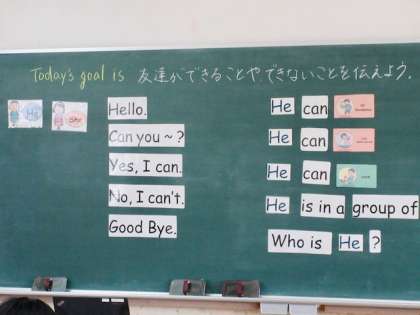 Today's goal is 友達ができることや、できないことを伝えよう。
He
She
Hello.
Can you ~ ?
Yes, I can.
No, I can't.
Good Bye.
He can
He can
He can
He is in a group of
Who is He ?